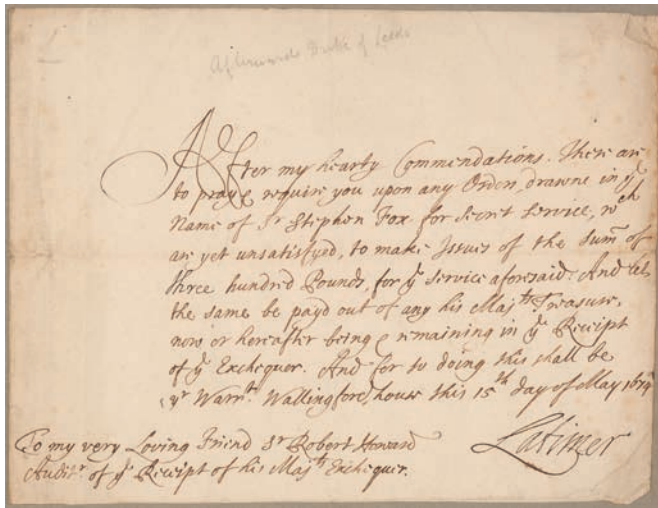 Afterwards Duke of Leeds
After my hearty Commendations. These are
to pray & require you upon any Orders drawne in yᵉ
Name of Sʳ Stephen Fox for Secret Service, wᶜʰ
are yet unsatisfyed, to make Issues of the Sum of
three hundred Pounds, for yᵉ Service aforesaid: And let
the same be payd out of any his Majᵗˢ Treasure,
now or hereafter being & remaining in yᵉ Receipt
of yᵉ Exchequer. And for so doing this shall be
yʳ Warrᵗ. Wallingford house this 15ᵗʰ day of May 1674
Latimer
To my very Loving Friend Sʳ Robert Howard
Auditʳ of yᵉ Receipt of his Majᵗˢ Exchequer.